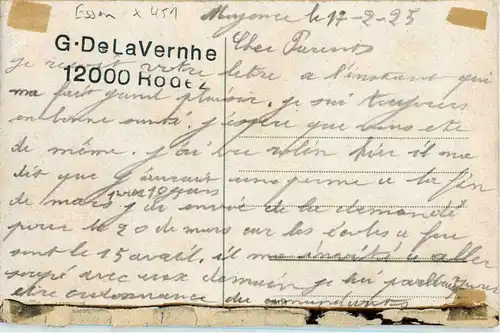 Essen x 451
Mayence le 17-2-25
G. DeLaVernhe
12000 RODEZ
Cher Parents
je reçoit votre letre a l'instant qui
ma fait grand plaisir. je sui toujours
en bonne santé. j'espere que vous ete
de même. j'ai vu hier il ma
dit que j'aurait une perme a la fin
pour 10 jours
de mars j'ai envie de la demandé
pour le 20 de mars car les écoles a feu
sont le 15 avril. il ma invité a aller
soupé avec eux demain je lui
etre ordonnance du commandant